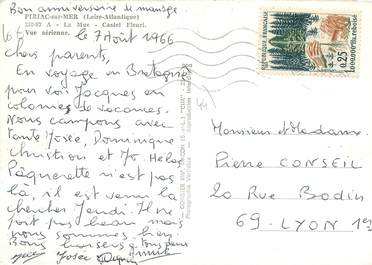 Bon anniversaire de mariage
PIRIAC-sur-MER (Loire-Atlantique)
222-97 A - La Mue - Castel Fleuri.
Vue aérienne.
le 7 Août 1966
Chers parents,
En voyage en Bretagne
pour voir Jacques en
colonies de vacances.
Nous campons avec
tante Josée, Dominique
Christian et Jo. Hélas
Pâquerette n'est pas
là, il est venu la
chercher Jeudi. Il ne
fait pas beau mais
nous sommes bien.
Bons baisers à tous deux
Josée
RÉPUBLIQUE FRANÇAISE
0,25
Monsieur et Madame
Pierre CONSEIL
20 Rue Bodin
69-LYON 1er